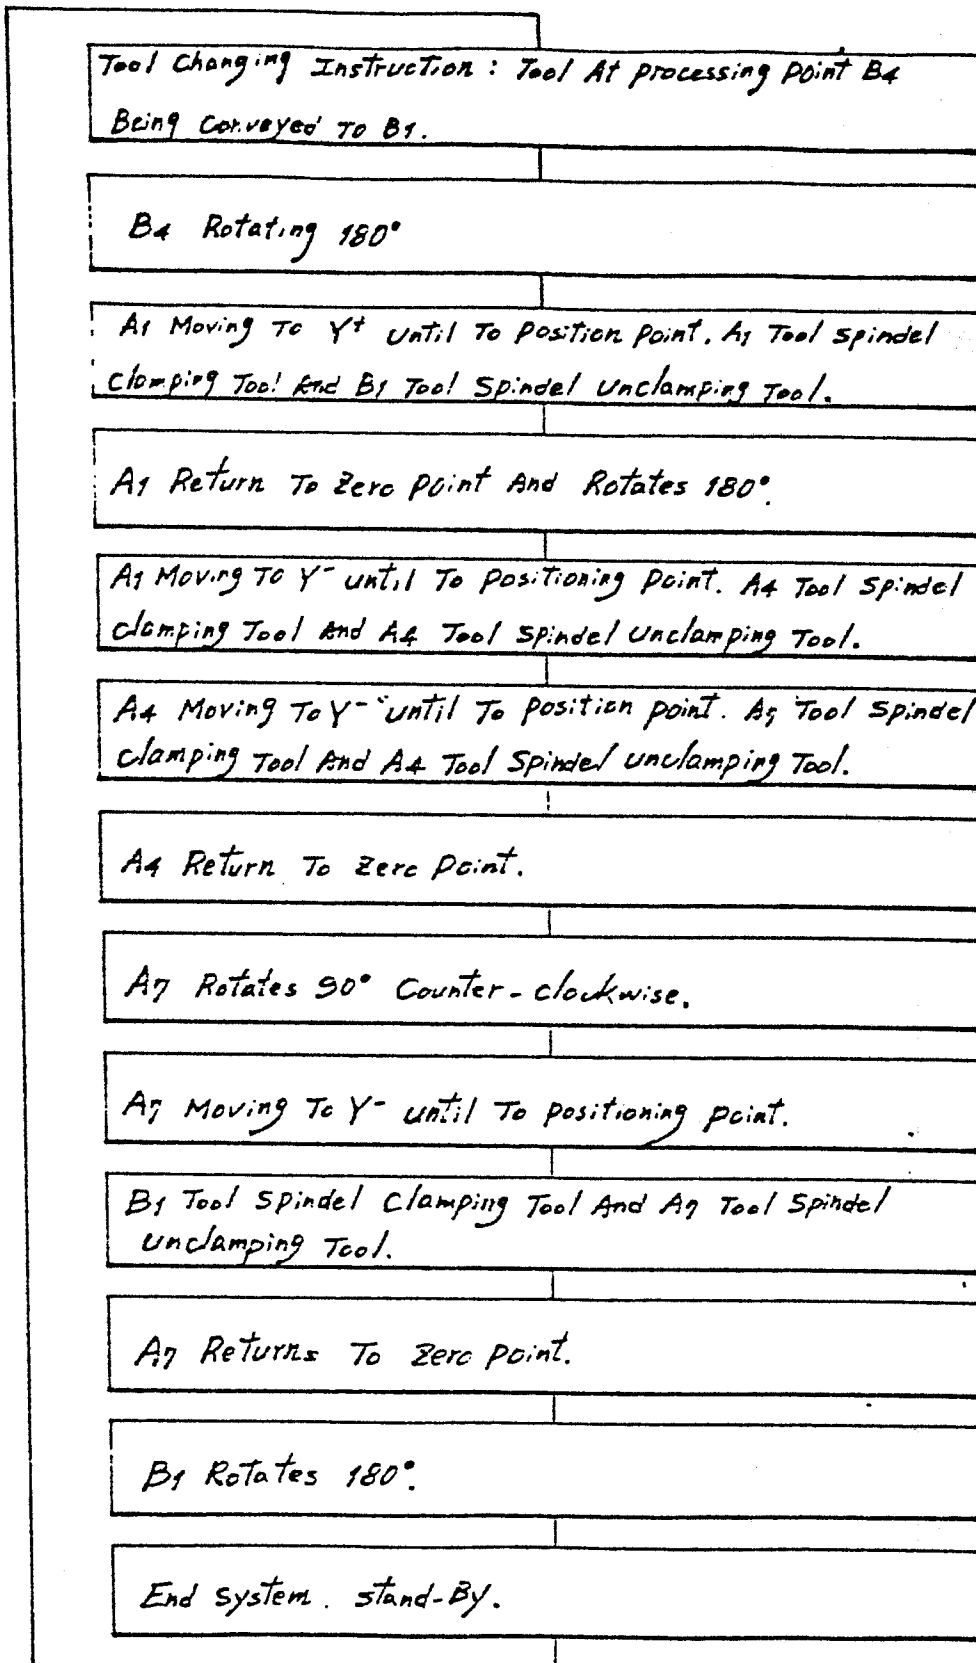 Tool Changing Instruction : Tool At processing Point B4
Being Conveyed To B1.
B4 Rotating 180°
A1 Moving To Y+ until To Position Point. A1 Tool Spindel
Clamping Tool And B1 Tool Spindel Unclamping Tool.
A1 Return To Zero Point And Rotates 180°.
A1 Moving To Y- until To Positioning Point. A4 Tool Spindel
Clamping Tool And A4 Tool Spindel Unclamping Tool.
A4 Moving To Y- until To Position Point. A5 Tool Spindel
Clamping Tool And A4 Tool Spindel unclamping Tool.
A4 Return To Zero Point.
A7 Rotates 90° Counter-clockwise.
A7 Moving To Y- until To Positioning Point.
B1 Tool Spindel Clamping Tool And A7 Tool Spindel
unclamping Tool.
A7 Returns To Zero Point.
B1 Rotates 180°.
End System. Stand-By.